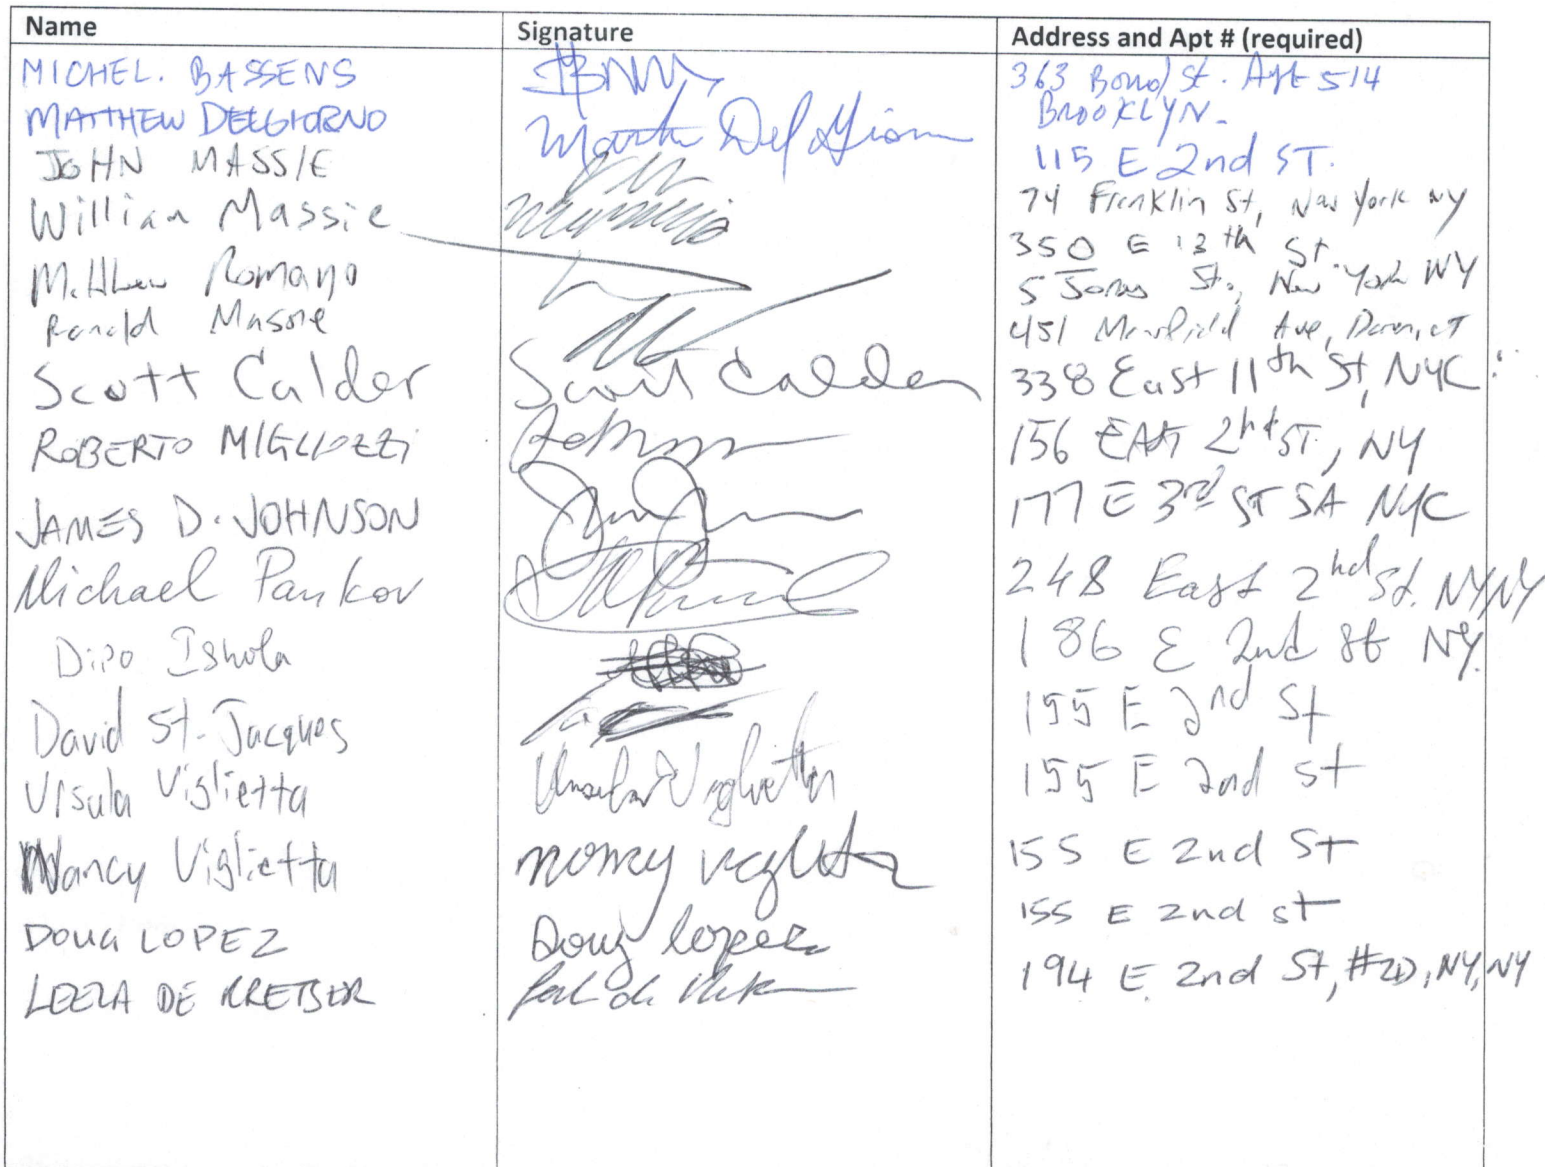 Name Signature Address and Apt # (required)
MICHEL. BASSENS 363 Bond St. Apt 514
BROOKLYN.
MATTHEW DELGIORNO Del Giorn 115 E 2nd ST.
JOHN MASSIE 74 Franklin St, New York NY
William Massie 350 E 13th St.
Matthew Romano 5 Jones St., New York NY
Ronald Massie 451 Ave, Darien, CT
Scott Calder Scott Calder 338 East 11th St, NYC
ROBERTO MIGLIOZZI 156 EAST 2nd ST, NY
JAMES D. JOHNSON 177 E 3rd ST 5A NYC
Michael Pankov 248 East 2nd St. NY, NY
Dipo Ishola 186 E 2nd St NY.
David St. Jacques 155 E 2nd St
Ursula Viglietta Ursula Viglietta 155 E 2nd St
Nancy Viglietta Nancy Viglietta 155 E 2nd St
DOUG LOPEZ Doug Lopez 155 E 2nd St
LEELA DE KRETSER 194 E. 2nd St, #2D, NY, NY